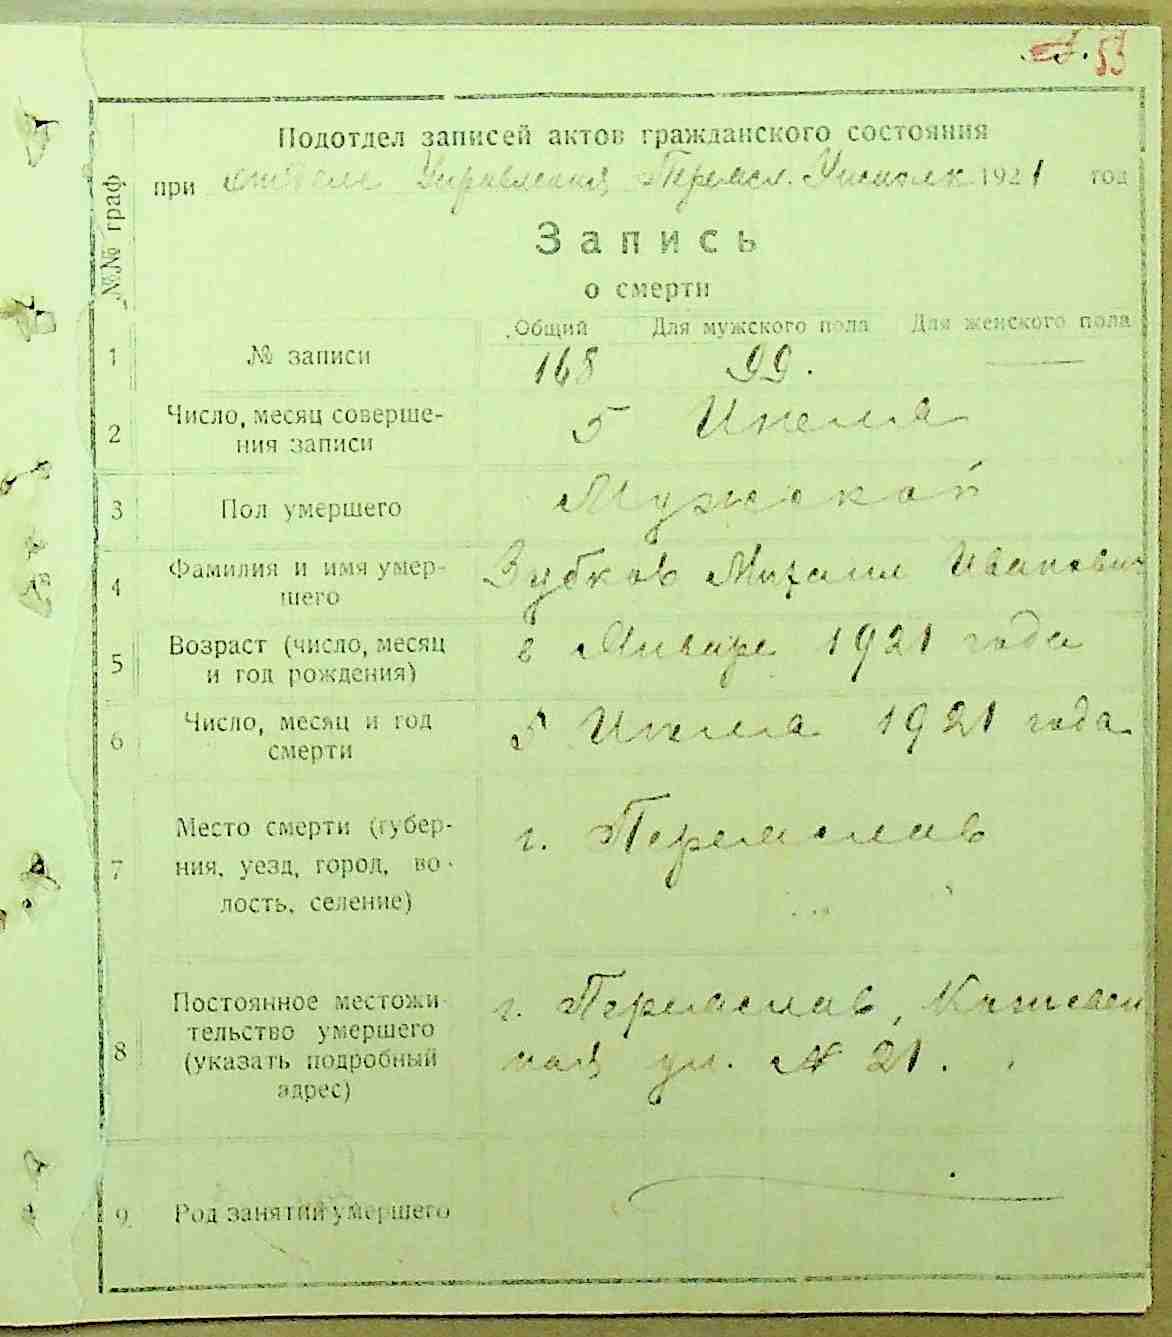 53
Подотдел записей актов гражданского состояния
при отделе Управления Перяасл. Уисполк 1921 год
№№ граф
Запись
о смерти
Общий Для мужского пола Для женского пола
1 № записи 168 99. —
2 Число, месяц соверше-
ния записи 5 Июля
3 Пол умершего Мужской
4 Фамилия и имя умер-
шего Зубков Михаил Иванович
5 Возраст (число, месяц
и год рождения) в Январе 1921 года
6 Число, месяц и год
смерти 5 Июля 1921 года
7 Место смерти (губер-
ния, уезд, город, во-
лость, селение) г. Переяславль
8 Постоянное местожи-
тельство умершего
(указать подробный
адрес) г. Переяславль,
ная ул. № 21.
9 Род занятий умершего —